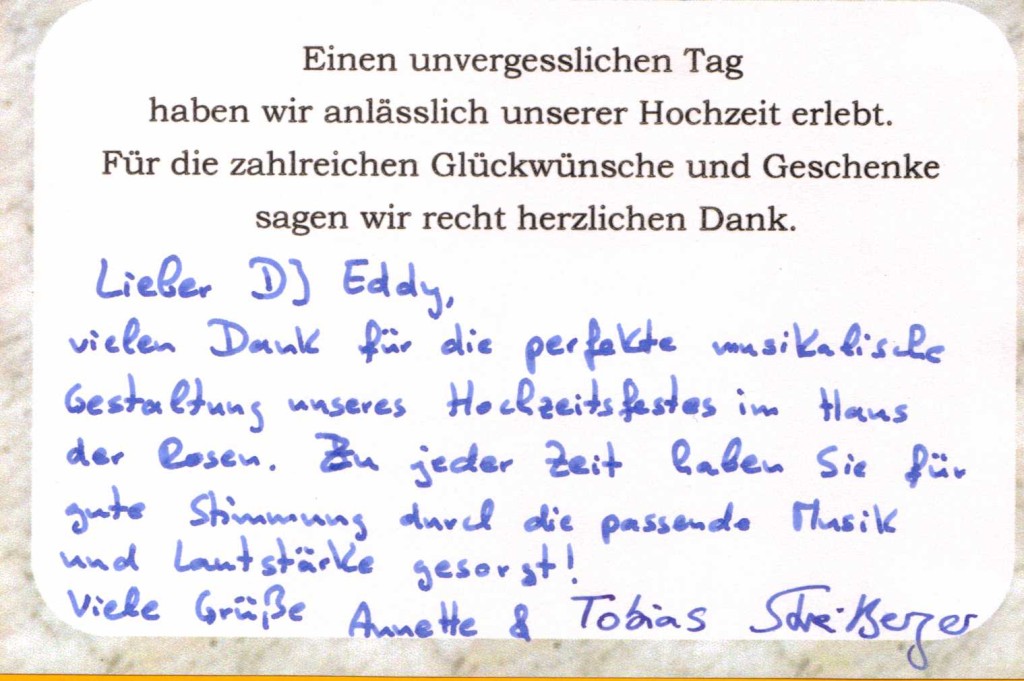 Einen unvergesslichen Tag
haben wir anlässlich unserer Hochzeit erlebt.
Für die zahlreichen Glückwünsche und Geschenke
sagen wir recht herzlichen Dank.
Lieber DJ Eddy,
vielen Dank für die perfekte musikalische
Gestaltung unseres Hochzeitsfestes im Haus
der Rosen. Zu jeder Zeit haben Sie für
gute Stimmung durch die passende Musik
und Lautstärke gesorgt!
Viele Grüße Annette & Tobias